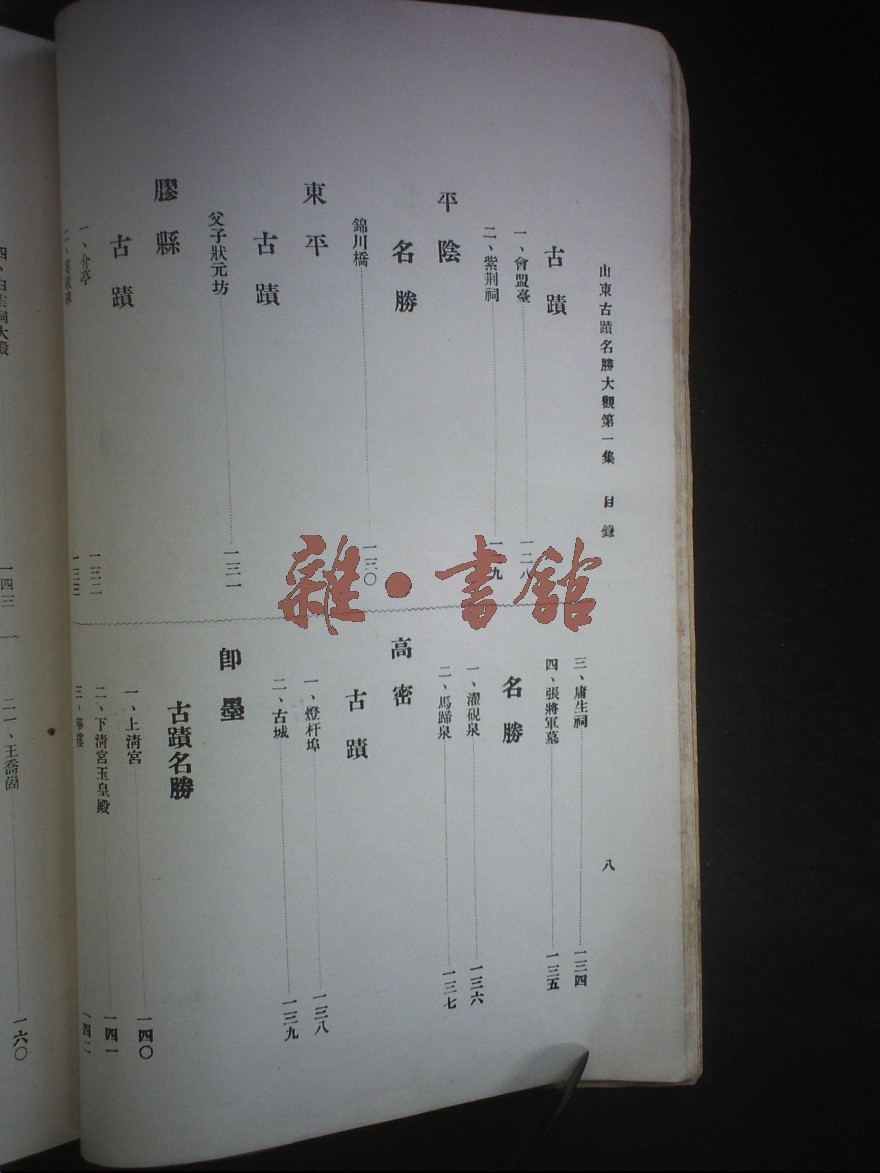 山東古蹟名勝大觀第一集 目錄 八
古蹟
一、會盟臺 一二八
二、紫荆祠 一二九
平陰
名勝
錦川橋 一三〇
東平
古蹟
父子狀元坊 一三一
膠縣
古蹟
一、介亭 一三二
一三三
三、庸生祠 一三四
四、張將軍墓 一三五
名勝
一、濯硯泉 一三六
二、馬蹄泉 一三七
高密
古蹟
一、燈杆埠 一三八
二、古城 一三九
即墨
古蹟名勝
一、上淸宮 一四〇
二、下淸宮玉皇殿 一四一
三、華樓 一四二
四、白雲洞大殿 一四三
二一、王喬崮 一六〇
雜·書館